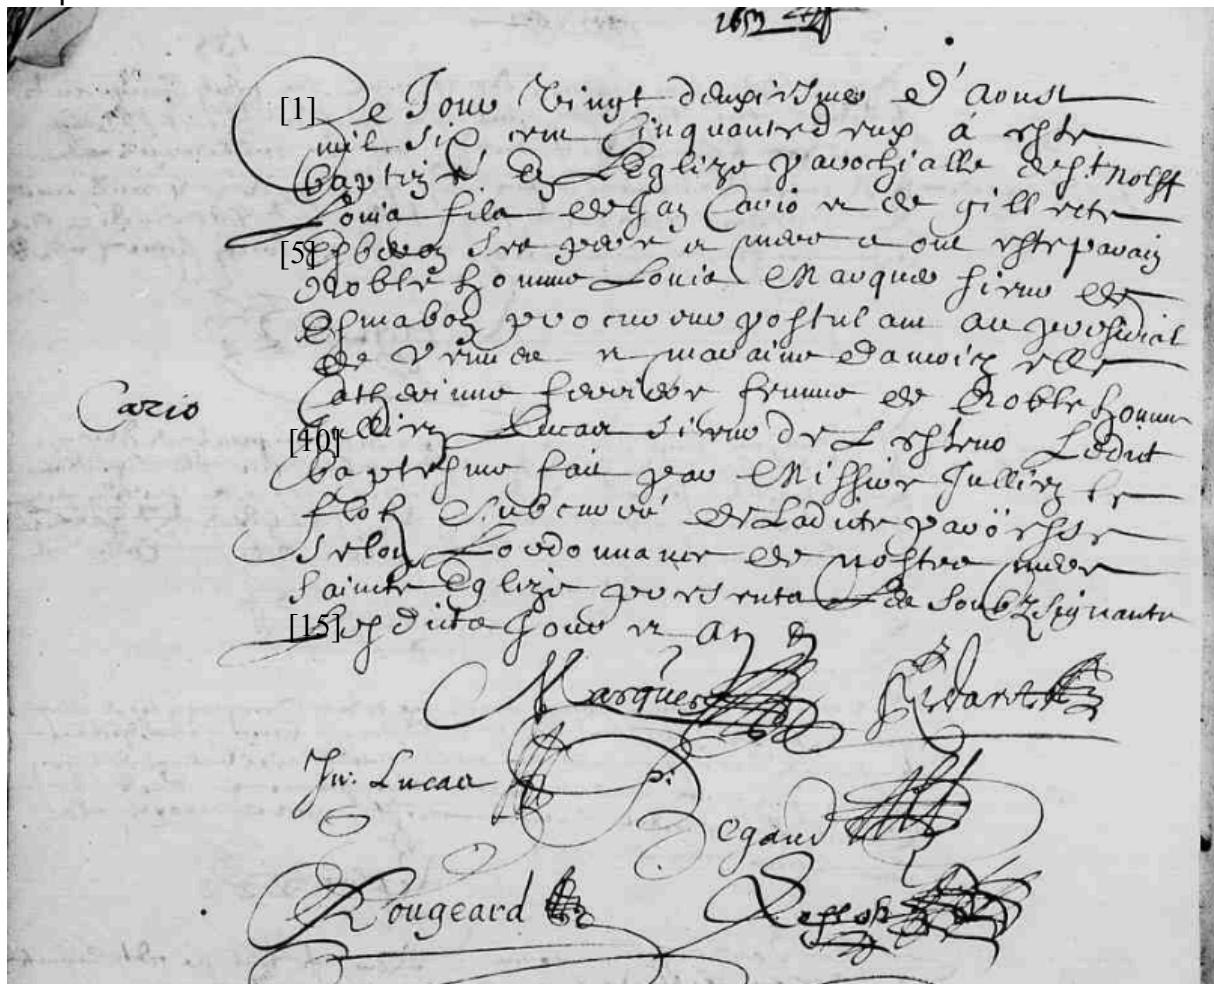 1652
[1] Ce Jour Vingt deuxiesme d'aoust
mil six cent Cinquante deux a esté
baptizé En L'Eglize parochialle de St nolff
Louis fils de Jan Cario et de gillette
[5] ses pere et mere et ont esté parain
Noble homme Louis Marques sieur de
procureur postulant au presidial
de Vennes et maraine damoizelle
Catherinne femme de Noble homme
[10] Jullien Lucas sieur de Ledict
baptesme fait par Missire Jullien le
floh Subcuré de Ladicte paroësse
selon Lordonnance de nostre mere
saincte Eglize presents Les soubzsignants
[15] Lesdicts Jour et an
Cario
Marques
Jn. Lucas
Rougeard